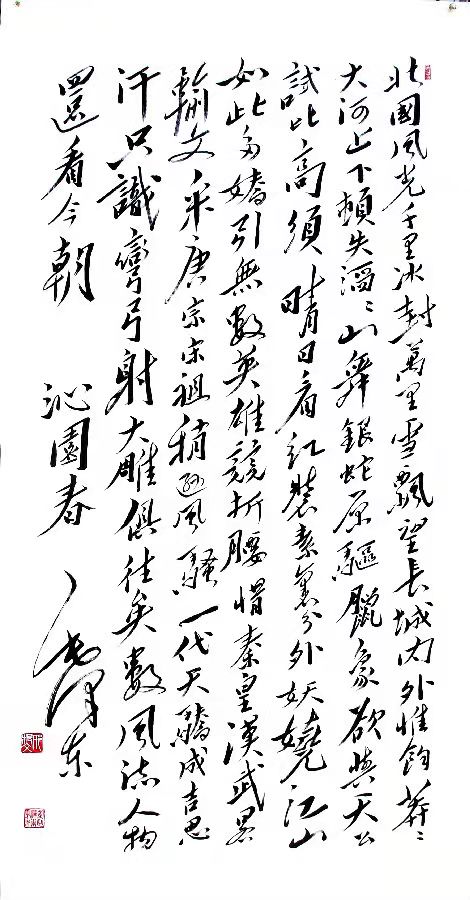 北國風光千里冰封萬里雪飄望長城內外惟餘莽〻
大河上下頓失滔〻山舞銀蛇原驅臘象欲與天公
試比高須晴日看紅裝素裹分外妖嬈江山
如此多嬌引無數英雄競折腰惜秦皇漢武畧
輸文采唐宗宋祖稍遜風騷一代天驕成吉思
汗只識彎弓射大雕俱往矣數風流人物
還看今朝 沁園春 毛澤东